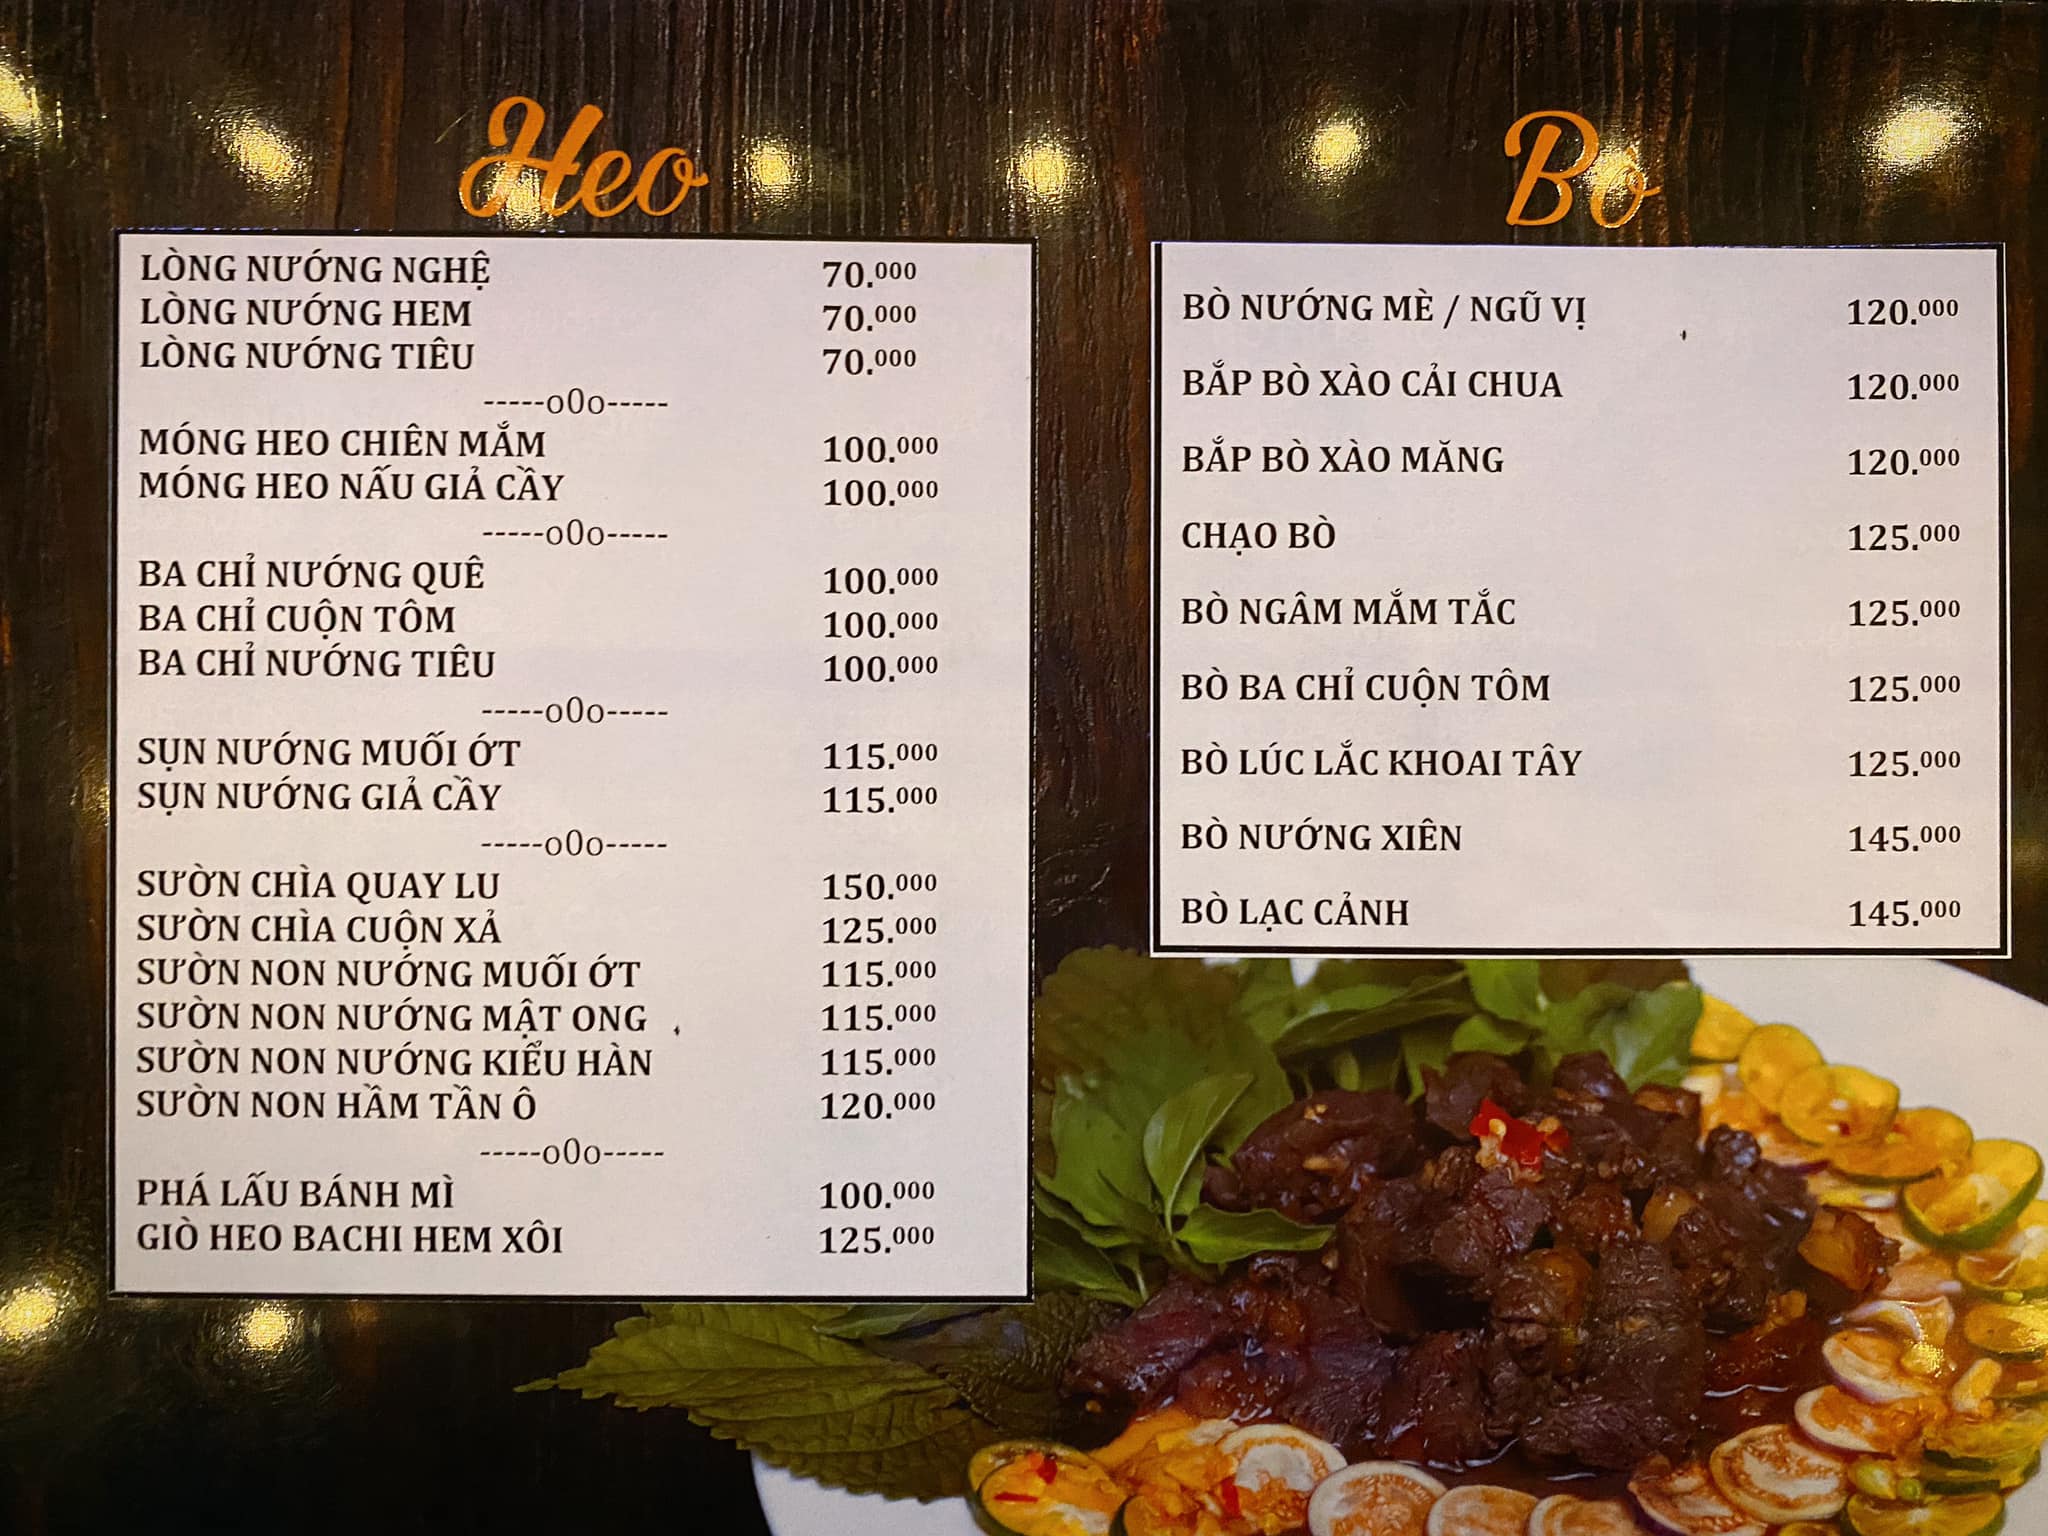 Heo
LÒNG NƯỚNG NGHỆ 70.000
LÒNG NƯỚNG HEM 70.000
LÒNG NƯỚNG TIÊU 70.000
-----o0o-----
MÓNG HEO CHIÊN MẮM 100.000
MÓNG HEO NẤU GIẢ CẦY 100.000
-----o0o-----
BA CHỈ NƯỚNG QUÊ 100.000
BA CHỈ CUỘN TÔM 100.000
BA CHỈ NƯỚNG TIÊU 100.000
-----o0o-----
SỤN NƯỚNG MUỐI ỚT 115.000
SỤN NƯỚNG GIẢ CẦY 115.000
-----o0o-----
SƯỜN CHÌA QUAY LU 150.000
SƯỜN CHÌA CUỘN XẢ 125.000
SƯỜN NON NƯỚNG MUỐI ỚT 115.000
SƯỜN NON NƯỚNG MẬT ONG 115.000
SƯỜN NON NƯỚNG KIỂU HÀN 115.000
SƯỜN NON HẦM TẦN Ô 120.000
-----o0o-----
PHÁ LẤU BÁNH MÌ 100.000
GIÒ HEO BACHI HEM XÔI 125.000
Bò
BÒ NƯỚNG MÈ / NGŨ VỊ 120.000
BẮP BÒ XÀO CẢI CHUA 120.000
BẮP BÒ XÀO MĂNG 120.000
CHẠO BÒ 125.000
BÒ NGÂM MẮM TẮC 125.000
BÒ BA CHỈ CUỘN TÔM 125.000
BÒ LÚC LẮC KHOAI TÂY 125.000
BÒ NƯỚNG XIÊN 145.000
BÒ LẠC CẢNH 145.000